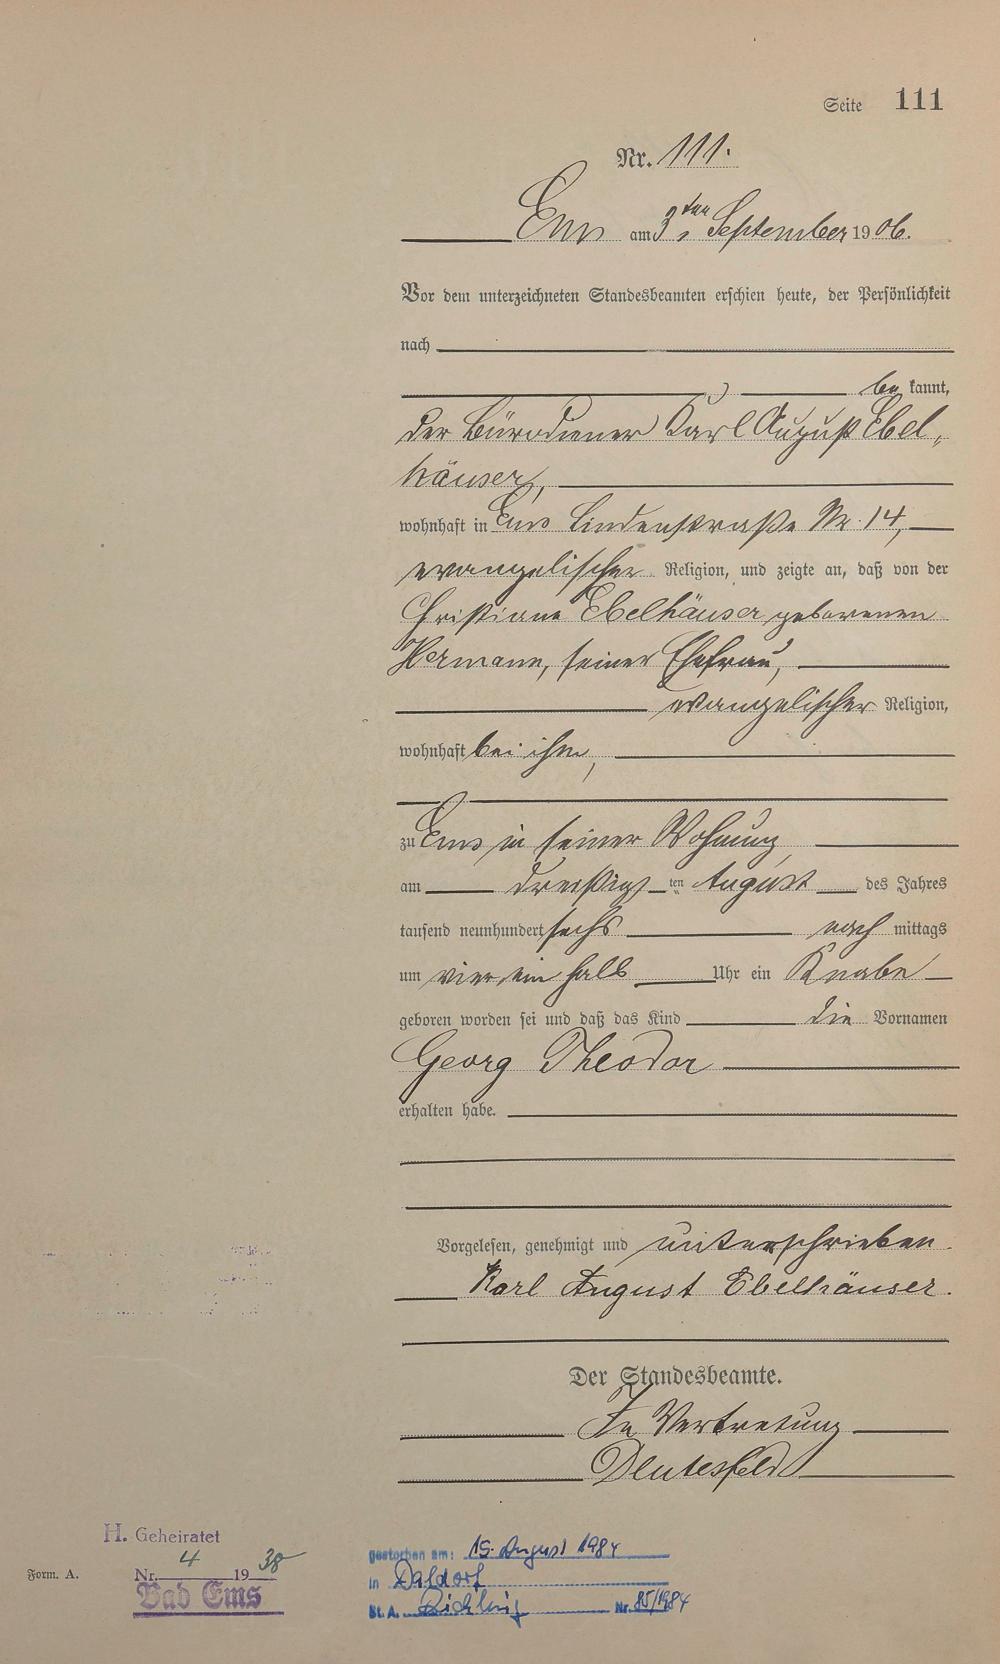 Seite 111
Nr. 111.
Ems am 3ten September 1906.
Vor dem unterzeichneten Standesbeamten erschien heute, der Persönlichkeit
nach
be kannt,
der Bürodiener Karl August Ebel-
häuser,
wohnhaft in Ems Lindenstraße Nr. 14,
evangelischer Religion, und zeigte an, daß von der
Christiane Ebelhäuser geborenen
Hermann, seiner Ehefrau,
evangelischer Religion,
wohnhaft bei ihm,
zu Ems in seiner Wohnung
am dreißig ten August des Jahres
tausend neunhundert sechs nach mittags
um vier ein halb Uhr ein Knabe
geboren worden sei und daß das Kind die Vornamen
Georg Theodor
erhalten habe.
Vorgelesen, genehmigt und unterschrieben.
Karl August Ebelhäuser.
Der Standesbeamte.
In Vertretung
H. Geheiratet
Nr. 4 1938
Bad Ems
Form. A.
gestorben am: 15. August 1984
in Daldorf
St. A. Rickling Nr. 85/1984